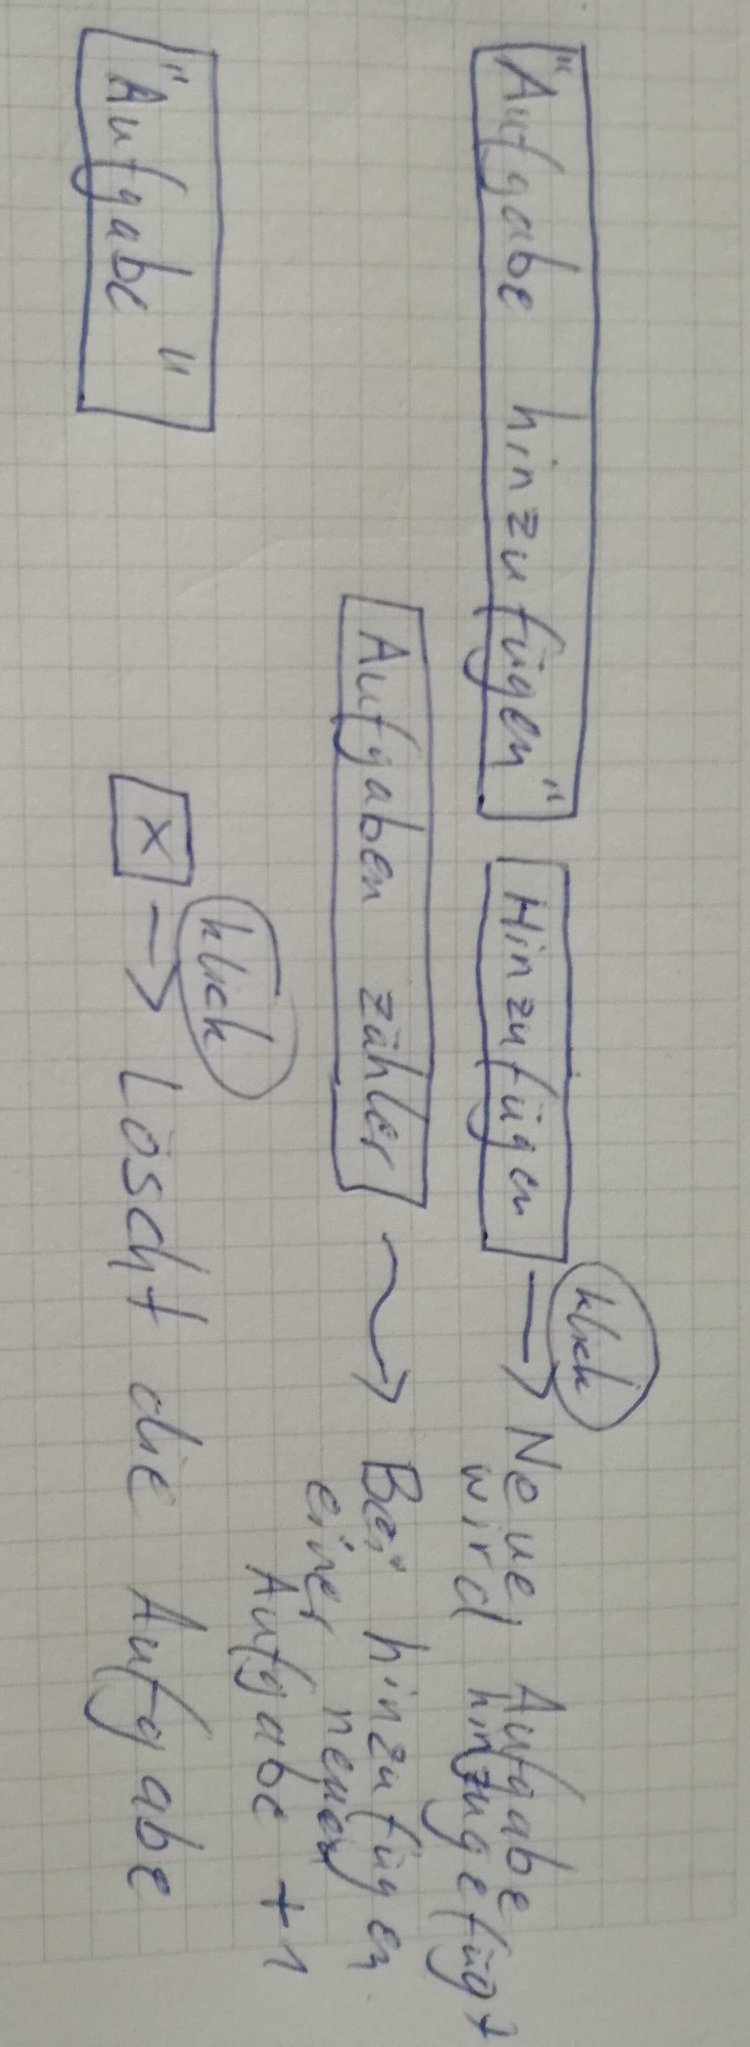 "Aufgabe hinzufügen" Hinzufügen klick → Neue Aufgabe
wird hinzugefügt
Aufgaben zähler → Bei hinzufügen
einer neuen
Aufgabe +1
klick
"Aufgabe" x → Löscht die Aufgabe